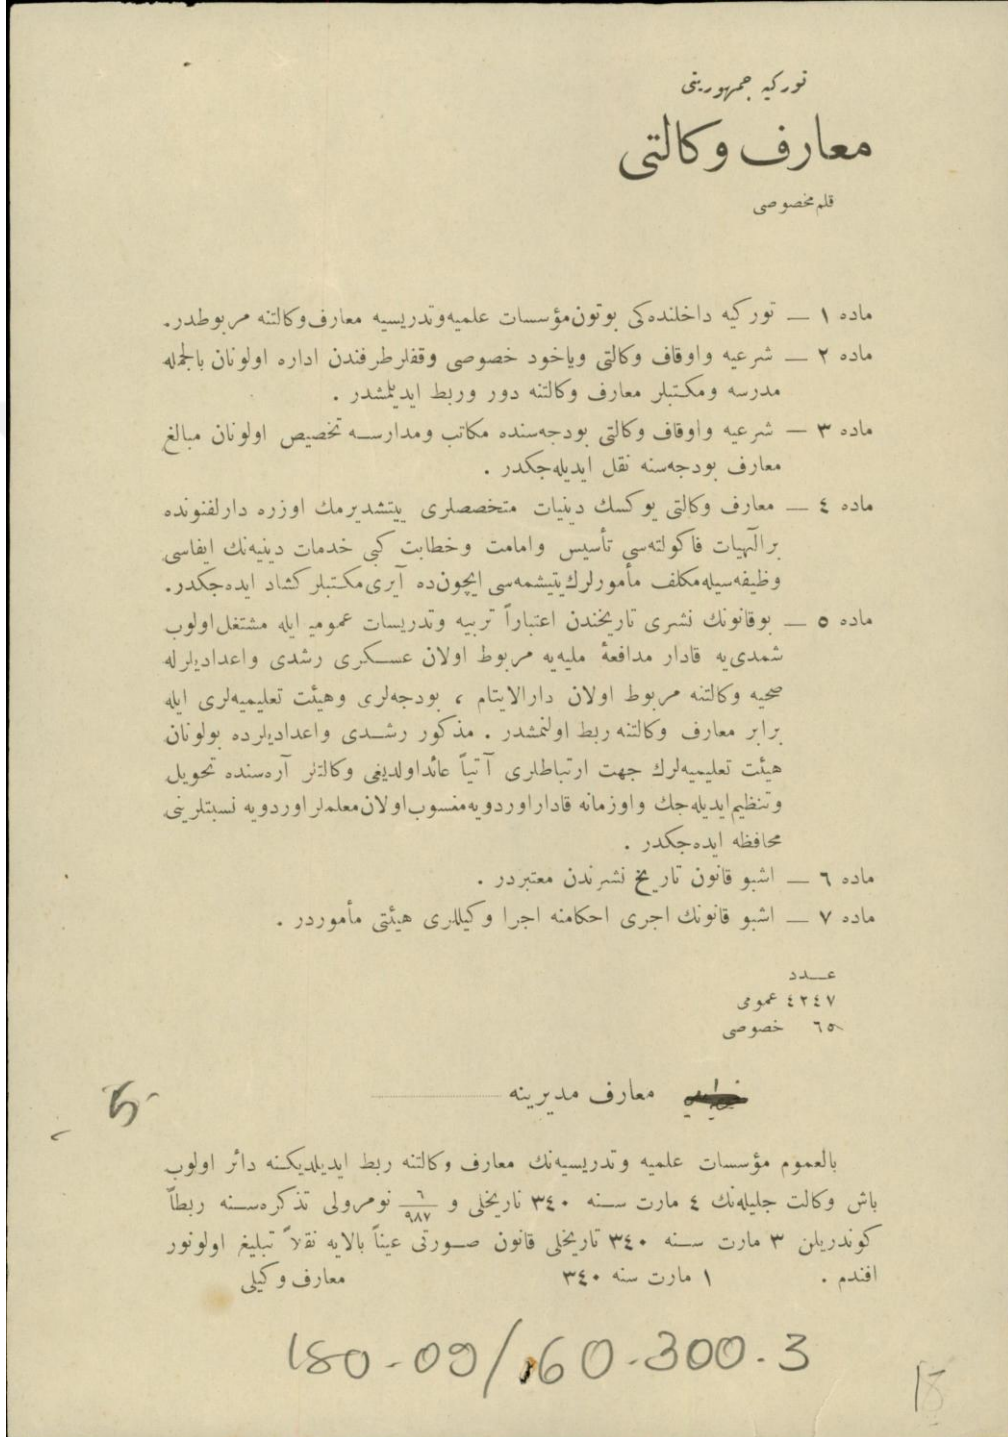 توركيه جمهوريتى
معارف وكالتى
قلم مخصوصى
ماده ١ — توركيه داخلنده‌كى بوتون مؤسسات علميه وتدريسيه معارف وكالتنه مربوطدر.
ماده ٢ — شرعيه واوقاف وكالتى وياخود خصوصى وقفلر طرفندن اداره اولونان بالجمله
مدرسه ومكتبلر معارف وكالتنه دور وربط ايديلمشدر .
ماده ٣ — شرعيه واوقاف وكالتى بودجه‌سنده مكاتب ومدارسه تخصيص اولونان مبالغ
معارف بودجه‌سنه نقل ايديله‌جكدر .
ماده ٤ — معارف وكالتى يوكسك دينيات متخصصلرى ييتشديرمك اوزره دارلفنونده
بر الٓهيات فاكولته‌سى تأسيس وامامت وخطابت كبى خدمات دينيه‌نك ايفاسى
وظيفه‌سيله مكلف مأمورلرك يتيشمه‌سى ايچون‌ده آيرى مكتبلر كشاد ايده‌جكدر.
ماده ٥ — بوقانونك نشرى تاريخندن اعتباراً تربيه وتدريسات عموميه ايله مشتغل اولوب
شمدى‌يه قادار مدافعهٔ مليه‌يه مربوط اولان عسكرى رشدى واعداديلرله
صحيه وكالتنه مربوط اولان دارالايتام ، بودجه‌لرى وهيئت تعليميه‌لرى ايله
برابر معارف وكالتنه ربط اولنمشدر . مذكور رشدى واعداديلرده بولونان
هيئت تعليميه‌لرك جهت ارتباطلرى آتياً عائد اولديغى وكالتلر آره‌سنده تحويل
وتنظيم ايديله‌جك واوزمانه قادار اوردويه منسوب اولان معلملر اوردويه نسبتلرينى
محافظه ايده‌جكدر .
ماده ٦ — اشبو قانون تاريخ نشرندن معتبردر .
ماده ٧ — اشبو قانونك اجرى احكامنه اجرا وكيللرى هيئتى مأموردر .
عدد
٤٢٤٧ عمومى
٦٥ خصوصى
معارف مديرينه
بالعموم مؤسسات علميه وتدريسيه‌نك معارف وكالتنه ربط ايديلديكنه دائر اولوب
باش وكالت جليله‌نك ٤ مارت سنه ٣٤٠ تاريخلى و ٦/٩٨٧ نومرولى تذكره‌سنه ربطاً
كوندريلن ٣ مارت سنه ٣٤٠ تاريخلى قانون صورتى عيناً بالايه نقلاً تبليغ اولونور
افندم . ١ مارت سنه ٣٤٠ معارف وكيلى
180-09/160-300-3
18